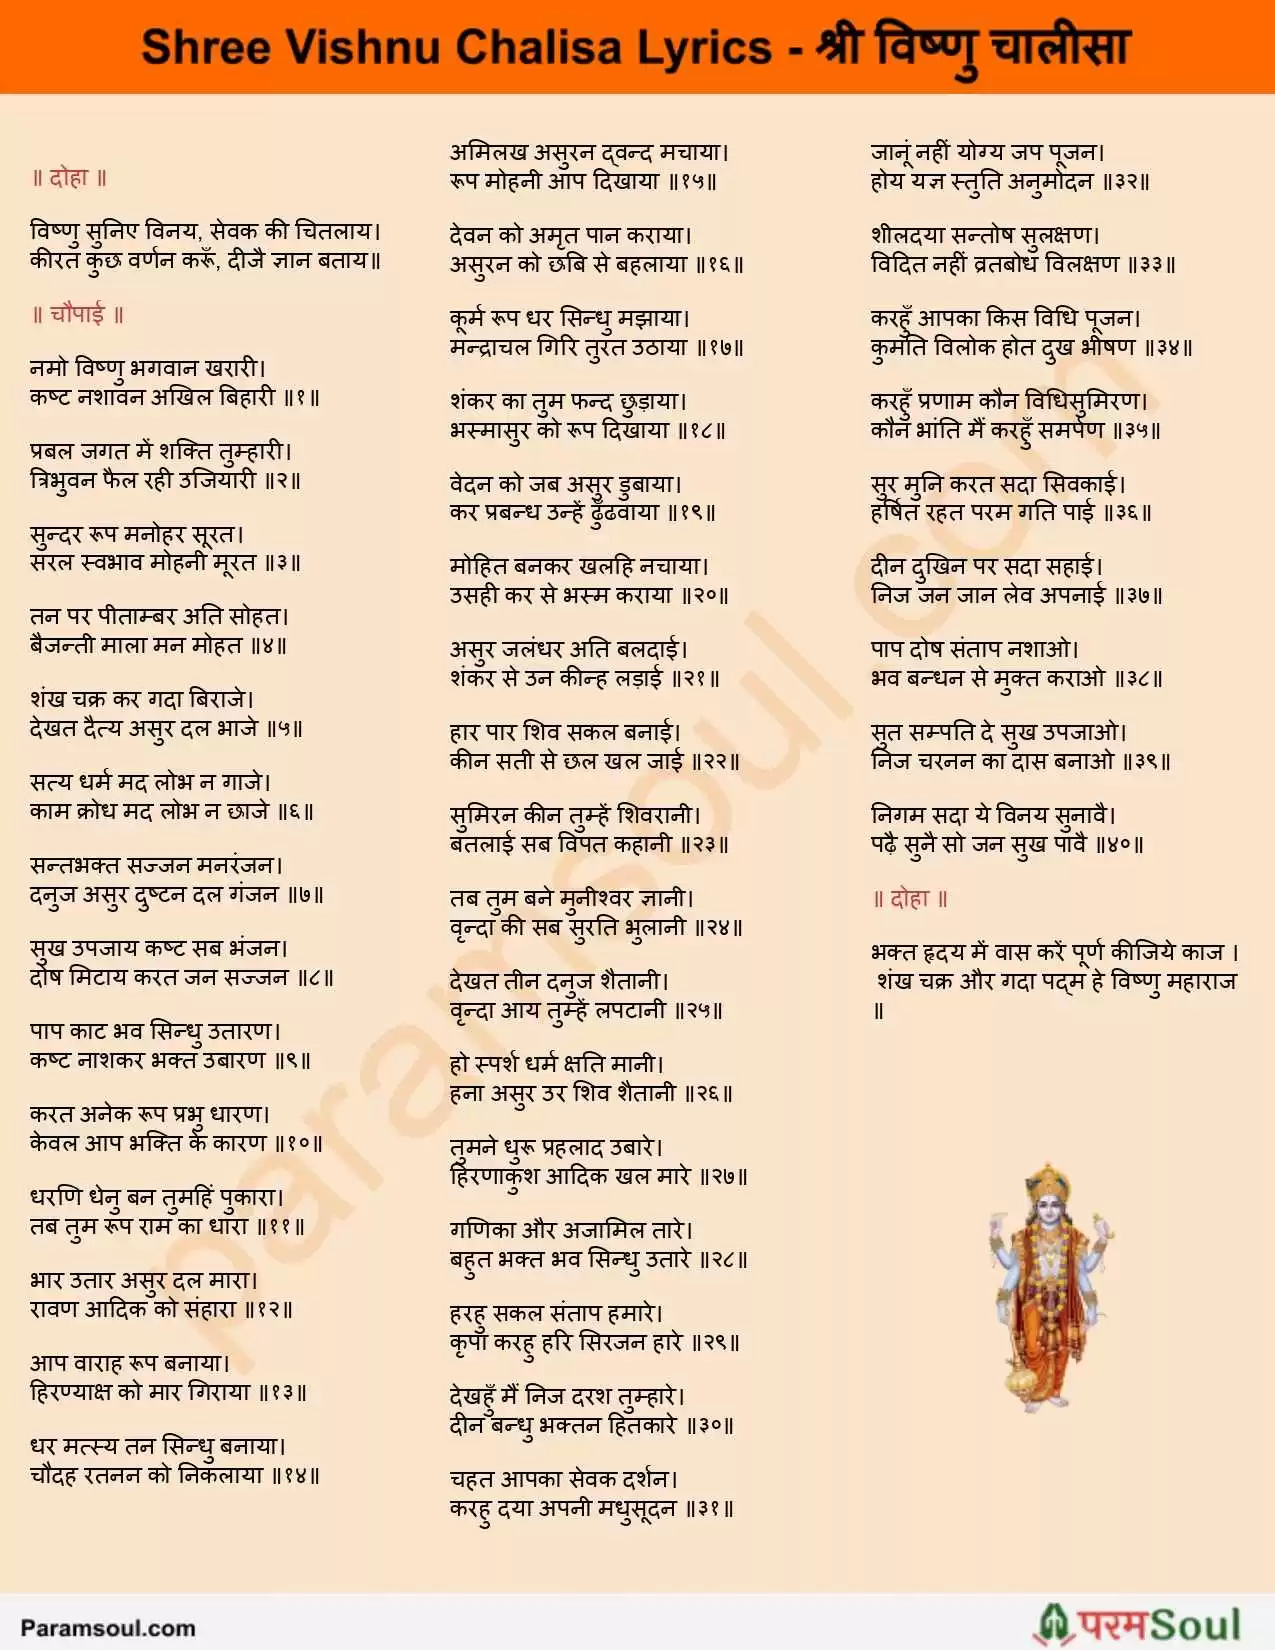 Shree Vishnu Chalisa Lyrics - श्री विष्णु चालीसा
॥ दोहा ॥
विष्णु सुनिए विनय, सेवक की चितलाय।
कीरत कुछ वर्णन करूँ, दीजै ज्ञान बताय॥
॥ चौपाई ॥
नमो विष्णु भगवान खरारी।
कष्ट नशावन अखिल बिहारी ॥१॥
प्रबल जगत में शक्ति तुम्हारी।
त्रिभुवन फैल रही उजियारी ॥२॥
सुन्दर रूप मनोहर सूरत।
सरल स्वभाव मोहनी मूरत ॥३॥
तन पर पीताम्बर अति सोहत।
बैजन्ती माला मन मोहत ॥४॥
शंख चक्र कर गदा बिराजे।
देखत दैत्य असुर दल भाजे ॥५॥
सत्य धर्म मद लोभ न गाजे।
काम क्रोध मद लोभ न छाजे ॥६॥
सन्तभक्त सज्जन मनरंजन।
दनुज असुर दुष्टन दल गंजन ॥७॥
सुख उपजाय कष्ट सब भंजन।
दोष मिटाय करत जन सज्जन ॥८॥
पाप काट भव सिन्धु उतारण।
कष्ट नाशकर भक्त उबारण ॥९॥
करत अनेक रूप प्रभु धारण।
केवल आप भक्ति के कारण ॥१०॥
धरणि धेनु बन तुमहिं पुकारा।
तब तुम रूप राम का धारा ॥११॥
भार उतार असुर दल मारा।
रावण आदिक को संहारा ॥१२॥
आप वाराह रूप बनाया।
हिरण्याक्ष को मार गिराया ॥१३॥
धर मत्स्य तन सिन्धु बनाया।
चौदह रतनन को निकलाया ॥१४॥
अमिलख असुरन द्वन्द मचाया।
रूप मोहनी आप दिखाया ॥१५॥
देवन को अमृत पान कराया।
असुरन को छबि से बहलाया ॥१६॥
कूर्म रूप धर सिन्धु मझाया।
मन्द्राचल गिरि तुरत उठाया ॥१७॥
शंकर का तुम फन्द छुड़ाया।
भस्मासुर को रूप दिखाया ॥१८॥
वेदन को जब असुर डुबाया।
कर प्रबन्ध उन्हें ढुँढवाया ॥१९॥
मोहित बनकर खलहि नचाया।
उसही कर से भस्म कराया ॥२०॥
असुर जलंधर अति बलदाई।
शंकर से उन कीन्ह लड़ाई ॥२१॥
हार पार शिव सकल बनाई।
कीन सती से छल खल जाई ॥२२॥
सुमिरन कीन तुम्हें शिवरानी।
बतलाई सब विपत कहानी ॥२३॥
तब तुम बने मुनीश्वर ज्ञानी।
वृन्दा की सब सुरति भुलानी ॥२४॥
देखत तीन दनुज शैतानी।
वृन्दा आय तुम्हें लपटानी ॥२५॥
हो स्पर्श धर्म क्षति मानी।
हना असुर उर शिव शैतानी ॥२६॥
तुमने धुरू प्रहलाद उबारे।
हिरणाकुश आदिक खल मारे ॥२७॥
गणिका और अजामिल तारे।
बहुत भक्त भव सिन्धु उतारे ॥२८॥
हरहु सकल संताप हमारे।
कृपा करहु हरि सिरजन हारे ॥२९॥
देखहुँ मैं निज दरश तुम्हारे।
दीन बन्धु भक्तन हितकारे ॥३०॥
चहत आपका सेवक दर्शन।
करहु दया अपनी मधुसूदन ॥३१॥
जानूं नहीं योग्य जप पूजन।
होय यज्ञ स्तुति अनुमोदन ॥३२॥
शीलदया सन्तोष सुलक्षण।
विदित नहीं व्रतबोध विलक्षण ॥३३॥
करहुँ आपका किस विधि पूजन।
कुमति विलोक होत दुख भीषण ॥३४॥
करहुँ प्रणाम कौन विधिसुमिरण।
कौन भांति मैं करहुँ समर्पण ॥३५॥
सुर मुनि करत सदा सिवकाई।
हर्षित रहत परम गति पाई ॥३६॥
दीन दुखिन पर सदा सहाई।
निज जन जान लेव अपनाई ॥३७॥
पाप दोष संताप नशाओ।
भव बन्धन से मुक्त कराओ ॥३८॥
सुत सम्पति दे सुख उपजाओ।
निज चरनन का दास बनाओ ॥३९॥
निगम सदा ये विनय सुनावै।
पढ़ै सुनै सो जन सुख पावै ॥४०॥
॥ दोहा ॥
भक्त हृदय में वास करें पूर्ण कीजिये काज ।
शंख चक्र और गदा पद्म हे विष्णु महाराज
॥
paramsoul.com
Paramsoul.com
परमSoul